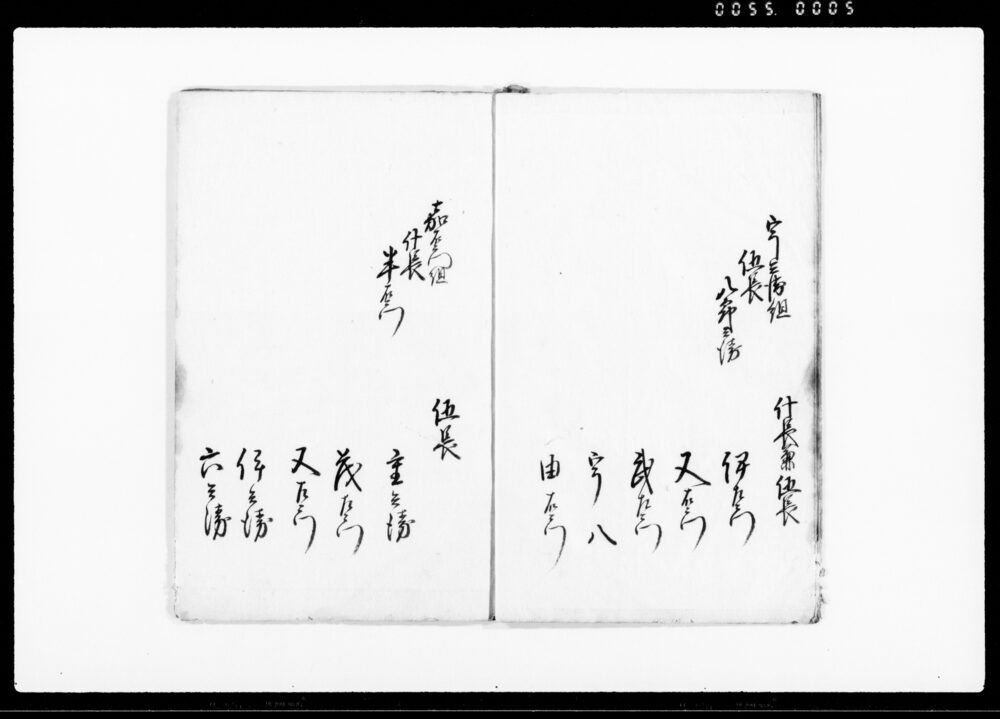 0055. 0005
宇兵衛組
伍長
八郎兵衛
什長兼伍長
伊左衛門
又右衛門
武左衛門
宇八
由右衛門
嘉右衛門組
什長
半右衛門
伍長
重兵衛
茂左衛門
又右衛門
伊兵衛
六兵衛